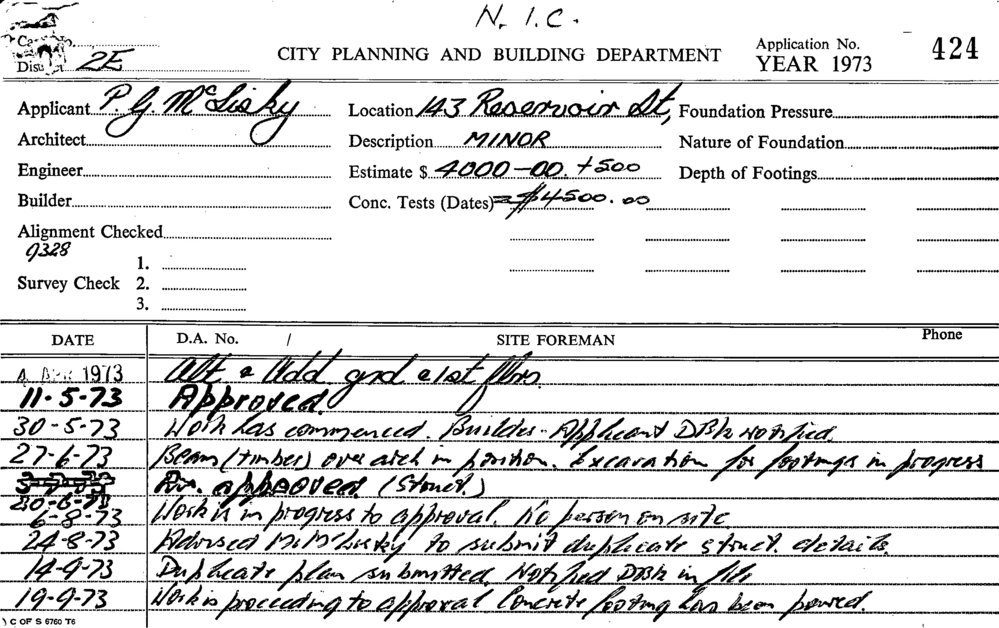 N.I.C.
Dist 2E
CITY PLANNING AND BUILDING DEPARTMENT
Application No. 424
YEAR 1973
Applicant P. G. McLisky Location 143 Reservoir St, Foundation Pressure
Architect Description MINOR Nature of Foundation
Engineer Estimate $ 4000-00. +500 Depth of Footings
Builder Conc. Tests (Dates) = $4500.00
Alignment Checked
9328
1.
Survey Check 2.
3.
DATE D.A. No. / SITE FOREMAN Phone
4 APR 1973 Alt. & Add grd & 1st flrs.
11-5-73 Approved.
30-5-73 Work has commenced. Builder - Applicant DBK Notified.
27-6-73 Beam (timber) over arch in position. Excavation for footings in progress
approved (Struct.)
6-8-73 Work is in progress to approval. No person on site
24-8-73 Advised Mr McLisky to submit duplicate struct. details.
14-9-73 Duplicate plan submitted. Notified DBK in file
19-9-73 Work is proceeding to approval Concrete footing has been poured.
C OF S 6760 T6